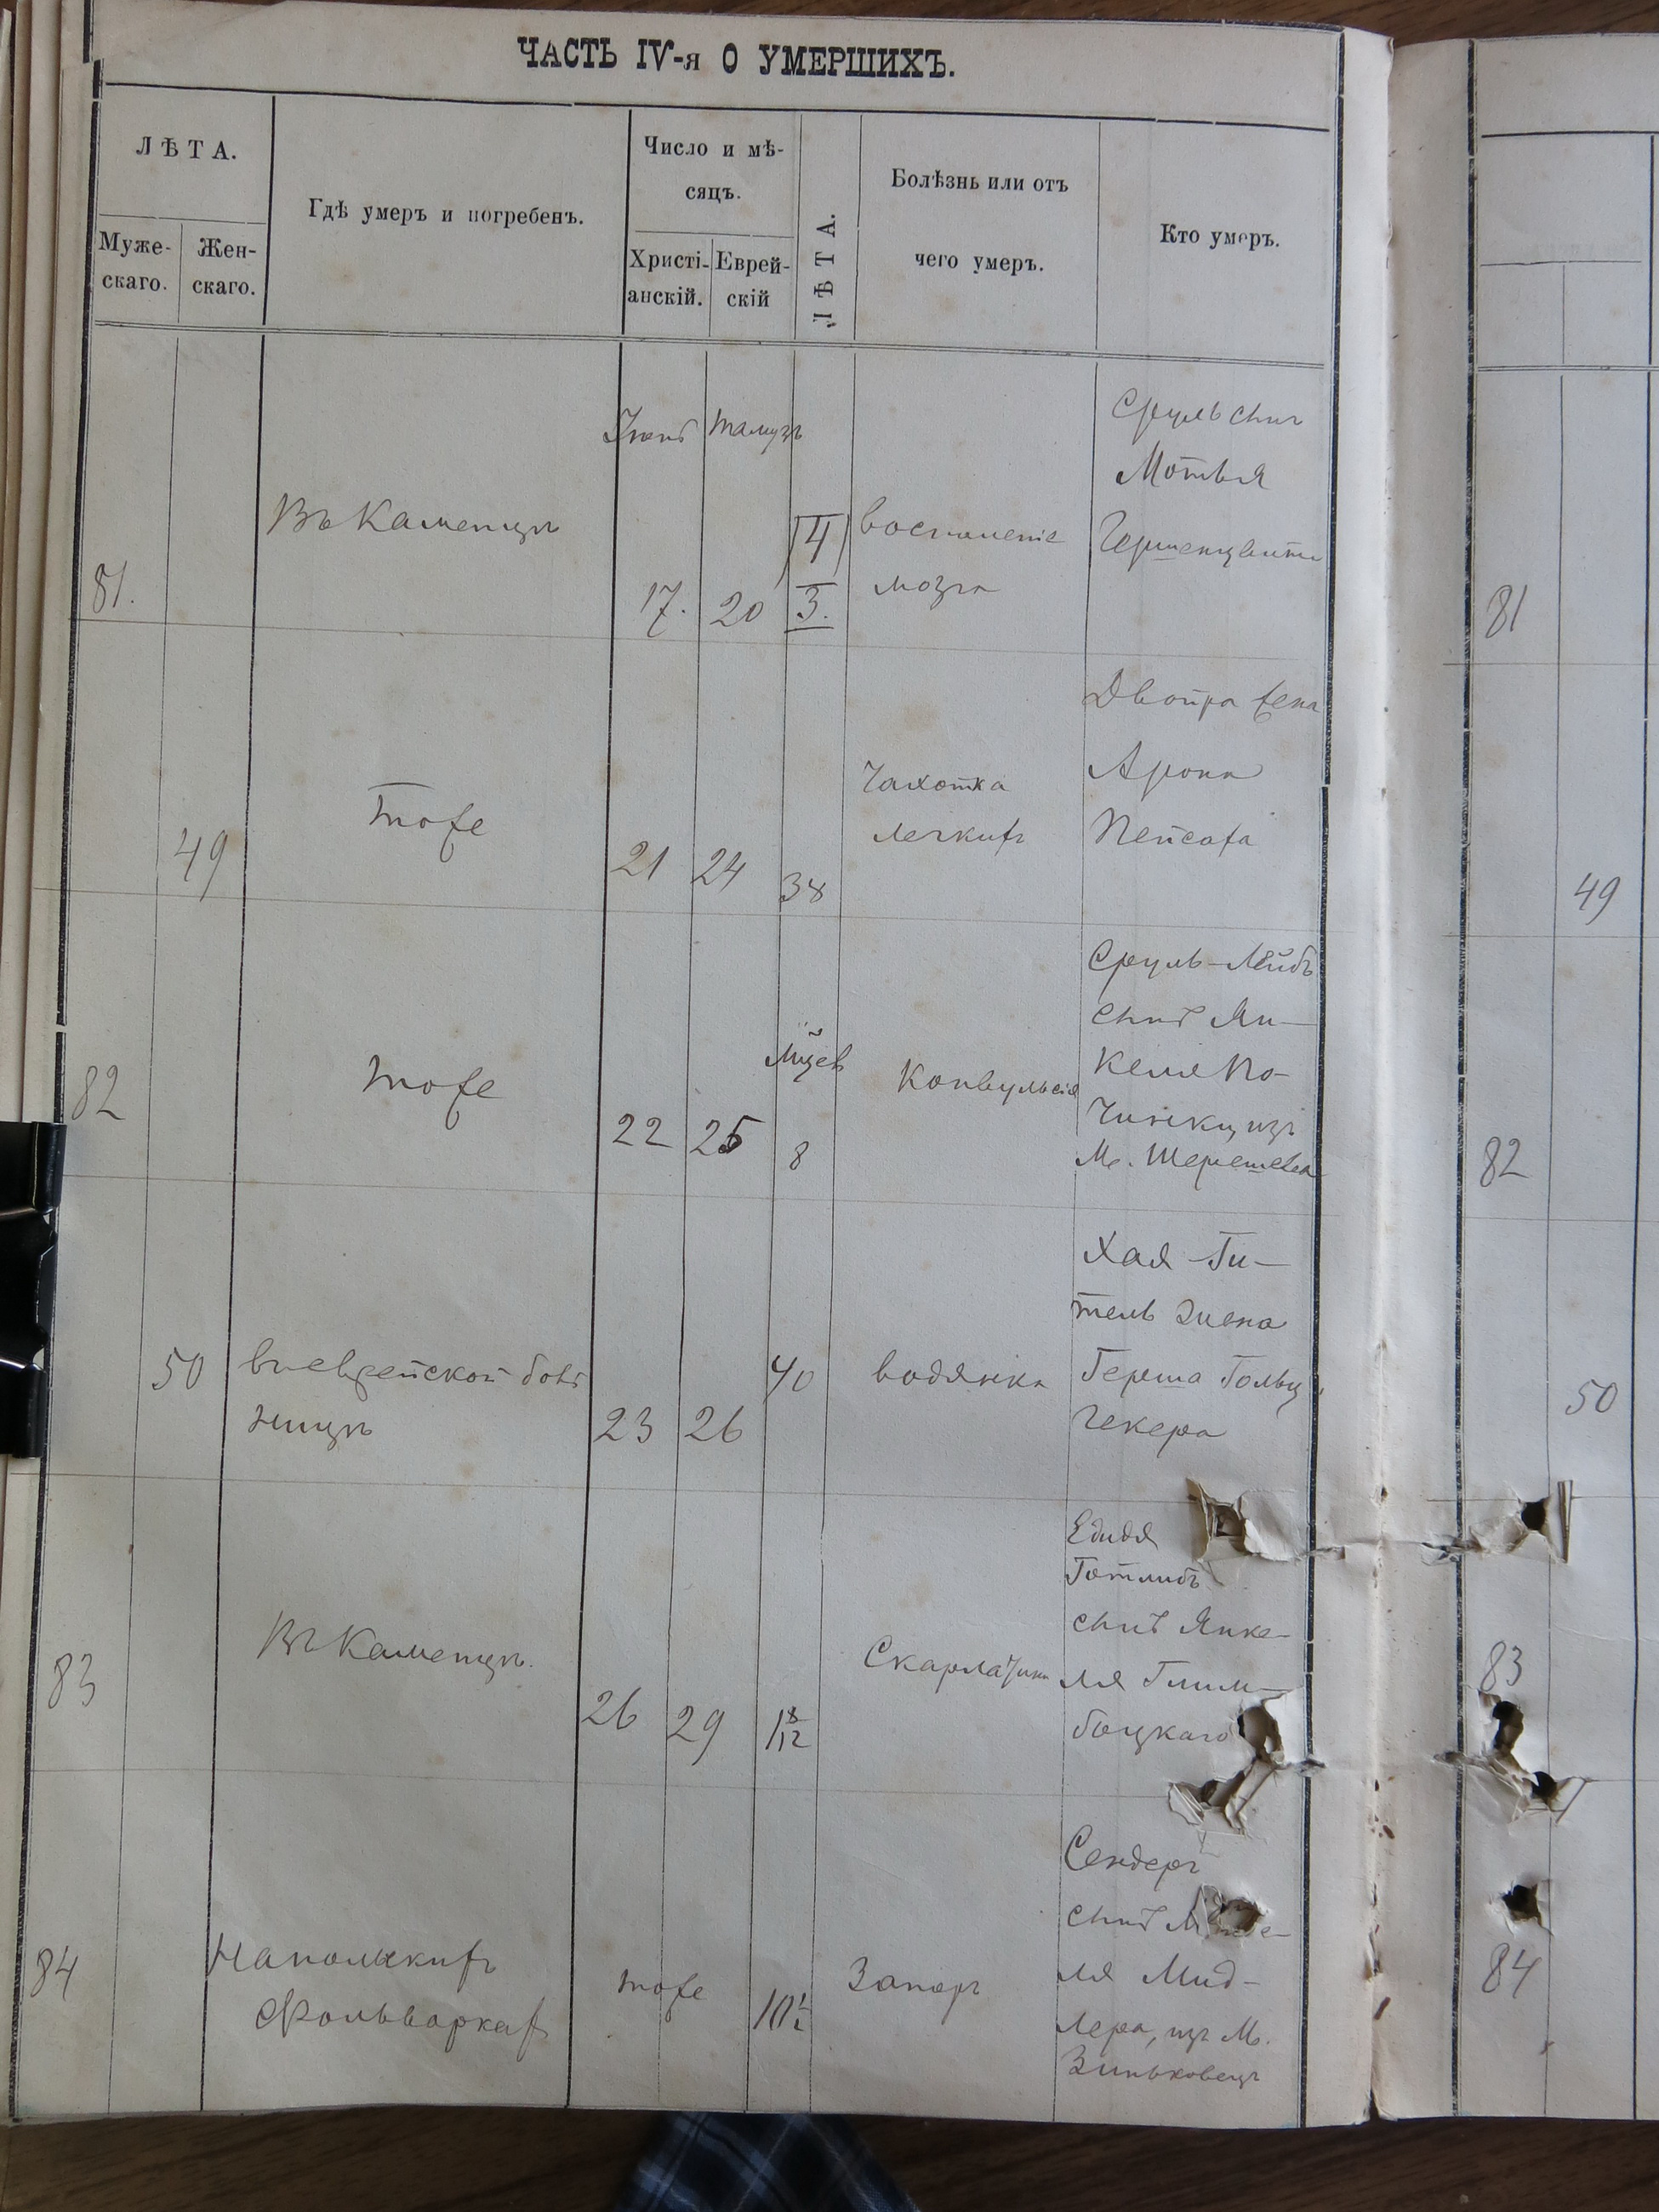 ЧАСТЬ IV-я О УМЕРШИХЪ.
ЛѢТА.
Муже-
скаго.
Жен-
скаго.
Гдѣ умеръ и погребенъ.
Число и мѣ-
сяцъ.
Христі-
анскій.
Еврей-
скій
ЛѢТА.
Болѣзнь или отъ
чего умеръ.
Кто умеръ.
81.
Въ Каменцѣ
Іюнь
17.
Тамузъ
20
4
3.
воспаленіе
мозга
Сруль сынъ
Мотья
Герценцвита
81
49
тоже
21
24
38
Чахотка
легкихъ
Двойра жена
Арона
Пейсаха
49
82
тоже
22
25
8
Конвульсія
Сруль-Лейбъ
сынъ Ян-
келя По-
чинки, изъ
м. Шерешева
82
50
въ еврейской боль
ницѣ
23
26
40
водянка
Хая-Ги-
тель жена
Герша Гольц
гекера
50
83
Въ Каменцѣ.
26
29
1 8/12
Скарлатина
Едидя
Готлибъ
сынъ Янке-
ля Глим-
боцкаго
83
84
На польскихъ
Фольваркахъ
тоже
10½
Запоръ
Сендеръ
сынъ
ля Мид-
лера, изъ м.
Зиньковецъ
84